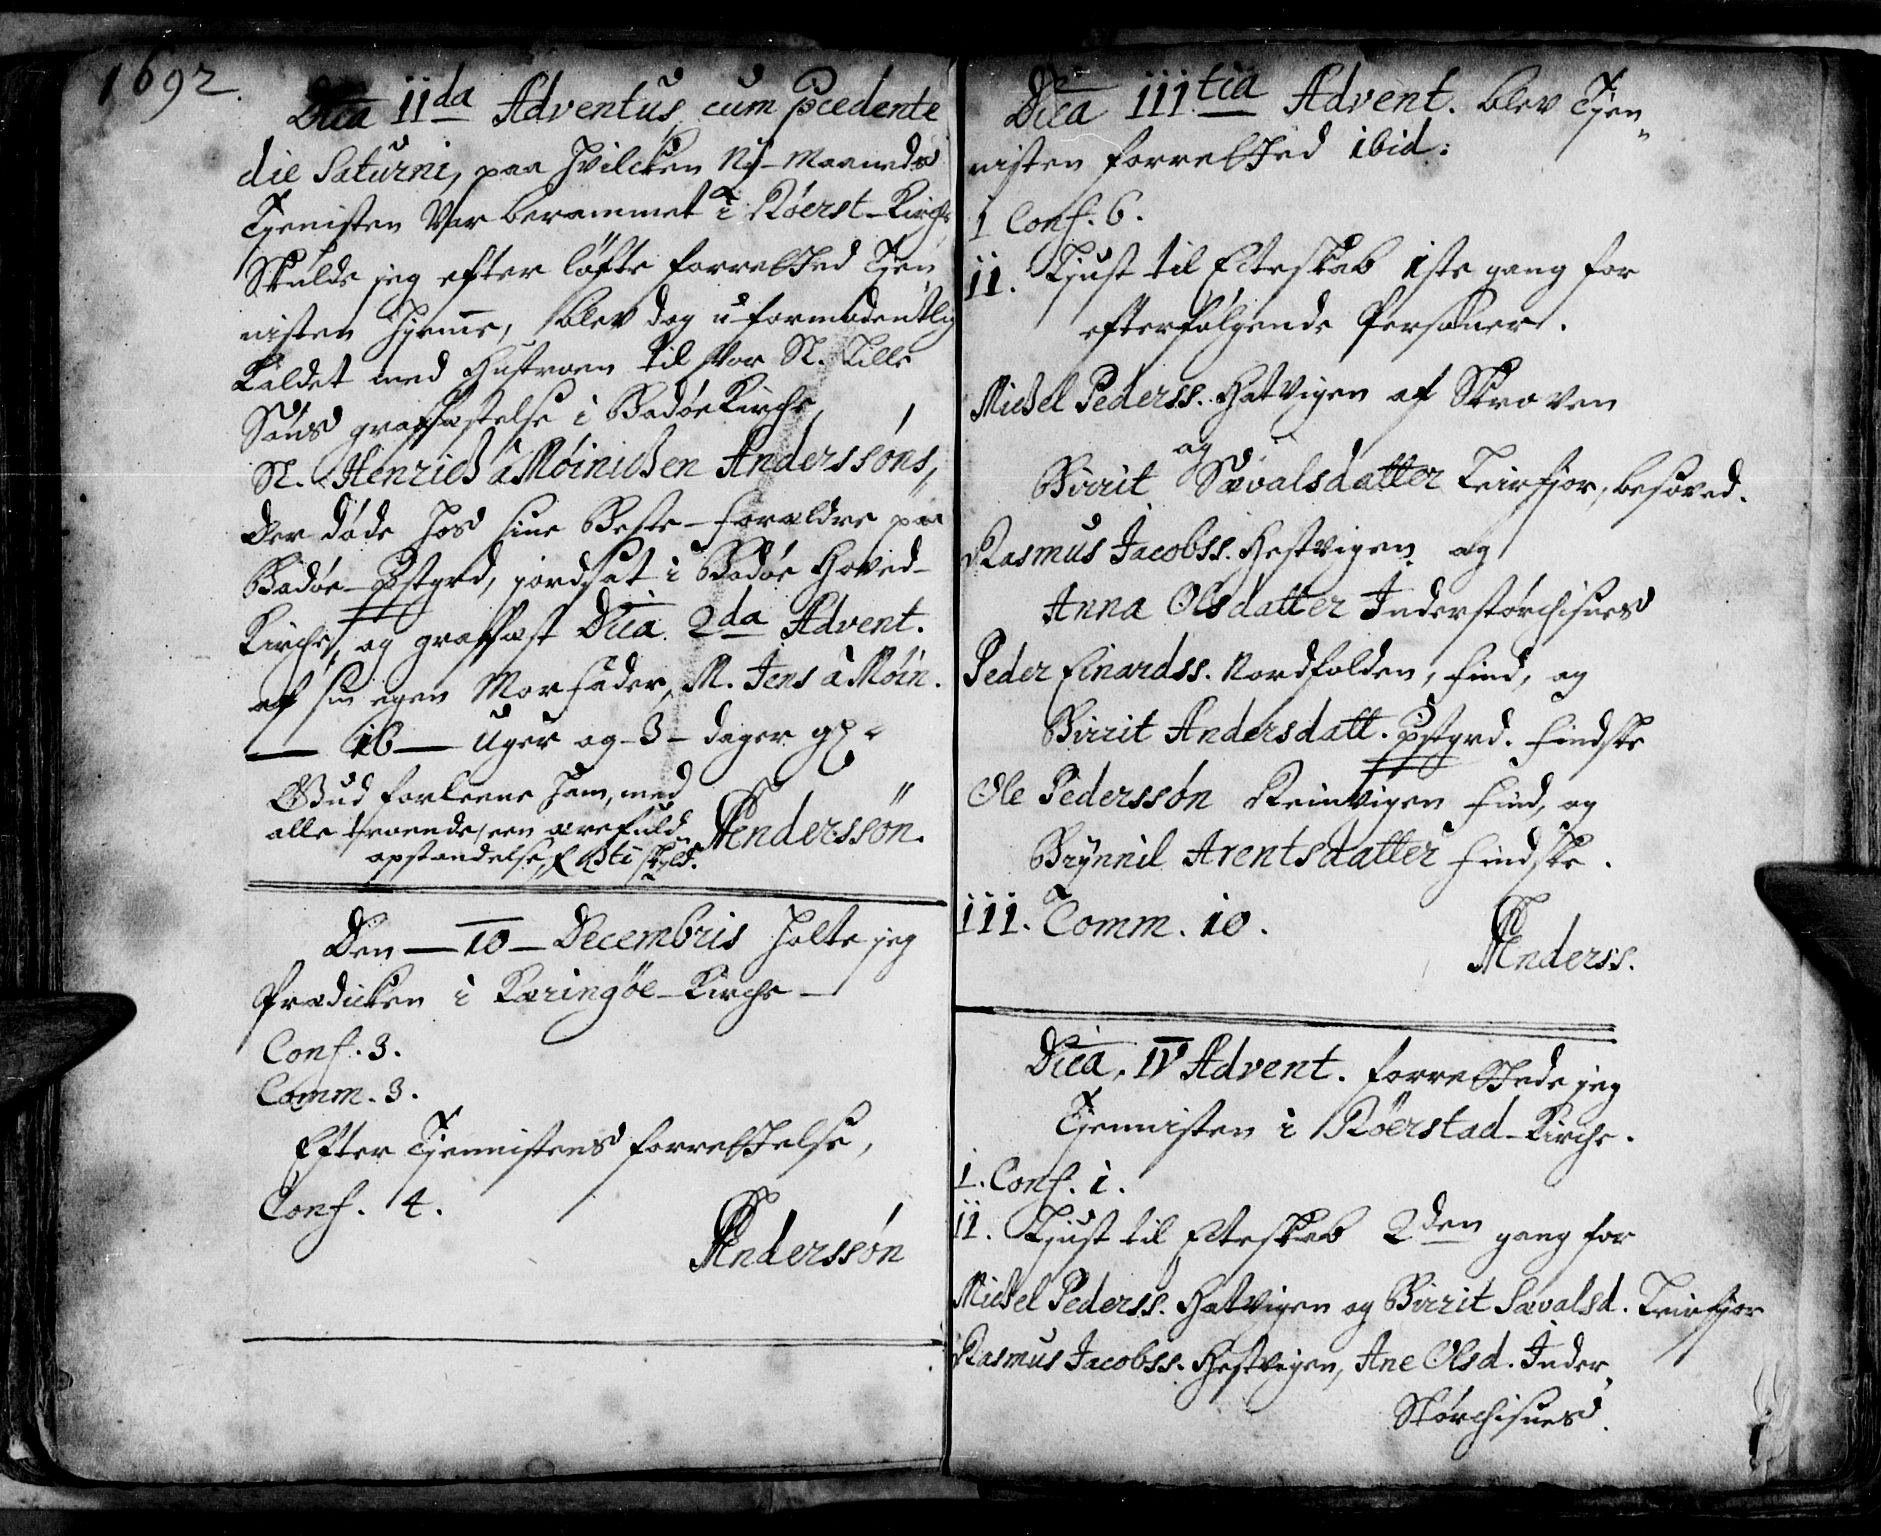 1692.
Dica IIda Adventus cum pcedente
die Saturni, paa hvilcken Ny-Maaneds
Tjenisten Var berammet i Röerst-Kirche
Skulde jeg efter löfte forretted Tjen„
nisten hjemme, blev dog u-formodentlig
Kaldet med Hustroen til Vor Sl. Lille
Söns graffæstelse i Bodöe Kirche,
Sl. Henrich à Möinichen Anderssöns,
der döde hos sine Beste-forældre paa
Bodöe-Pstgrd, jordsat i Bodöe Hoved-
Kirche, og graffæst Dica. 2da Advent.
af sin egen Morfader, M. Jens à Möin.
— 16 — Uger og - 3 - dager gl.
Gud forleene ham, med
alle troende, een ærefuld
opstandelse, f. Xsti skyld.
Anderssön.
Den — 10 — Decembris holte jeg
Prædicken i Kæringöe-Kirche —
Conf. 3.
Comm. 3.
Efter Tjennistens forrettelse,
Conf. 4.
Anderssön
Dica IIItia Advent. blev Tjen„
nisten forretted ibid:
I Conf. 6.
II. Liust til Ecteskab 1ste gang for
efterfölgende Personer.
Michel Pederss. Hatvigen af Skroven
og
Birrit Sævalsdatter Leirfjor, besöred.
Rasmus Jacobss. Hestvigen og
Anna Olsdatter Inderstörchisnes
Peder Einardss. Nordfolden, find, og
Birrit Andersdatt. Pstgrd. findske
Ole Pederssön Reinvigen find, og
Brÿnnil Arentsdatter findske.
III. Comm. 10.
Anderss.
Dica. IV Advent. forrettede jeg
Tjennisten i Röerstad-Kirche.
I. Conf. 1.
II. Liust til Ecteskab 2den gang for
Michel Pederss. Hatvigen og Birrit Sævalsd. Leirfjor
Rasmus Jacobss. Hestvigen, Ane Olsd. Inder„
Störchisnes.